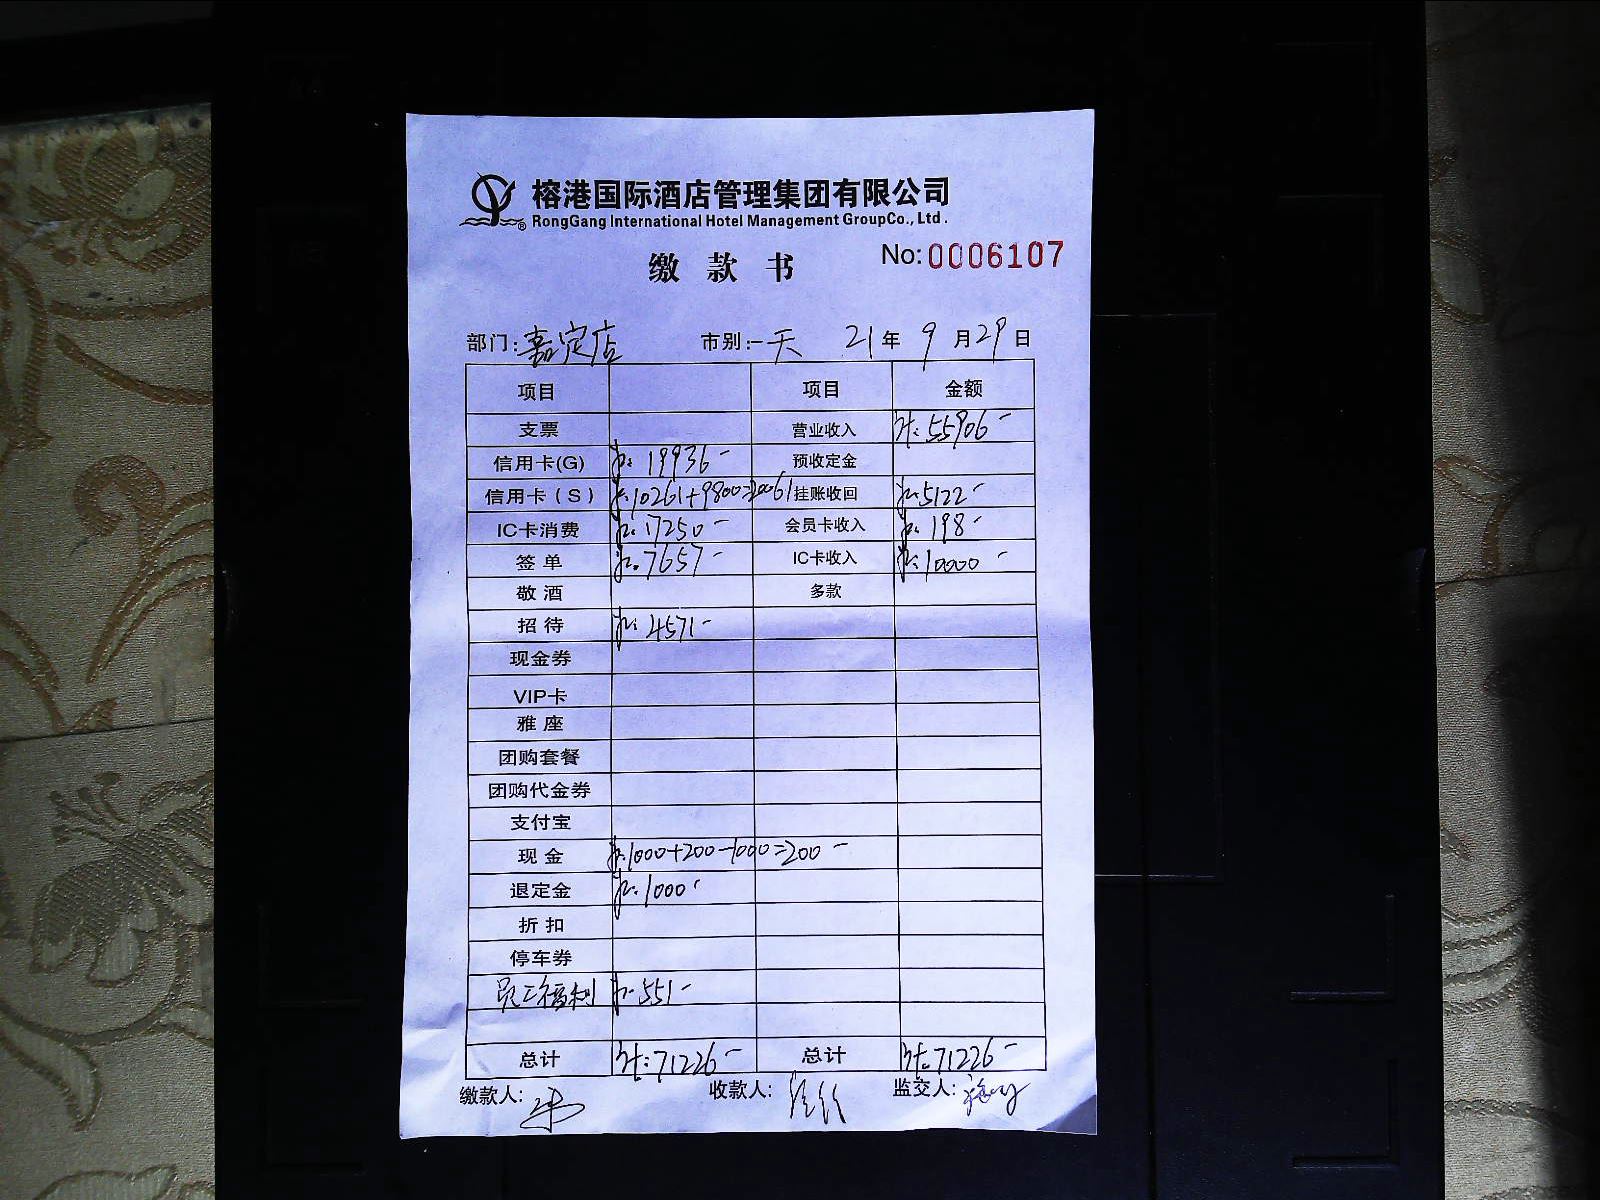 榕港国际酒店管理集团有限公司
® RongGang International Hotel Management GroupCo., Ltd.
缴 款 书 No:0006107
部门:嘉定店 市别:一天 21年 9月29日
项目 项目 金额
支票 营业收入 计:55906-
信用卡(G) 19936- 预收定金
信用卡(S) 10261+9800=20061 挂账收回 5122-
IC卡消费 17250- 会员卡收入 198-
签单 7657- IC卡收入 10000-
敬酒 多款
招待 4571-
现金券
VIP卡
雅座
团购套餐
团购代金券
支付宝
现金 1000+200-1000=200-
退定金 1000-
折扣
停车券
员工福利 551-
总计 计:71226- 总计 计:71226-
缴款人: 收款人: 监交人: